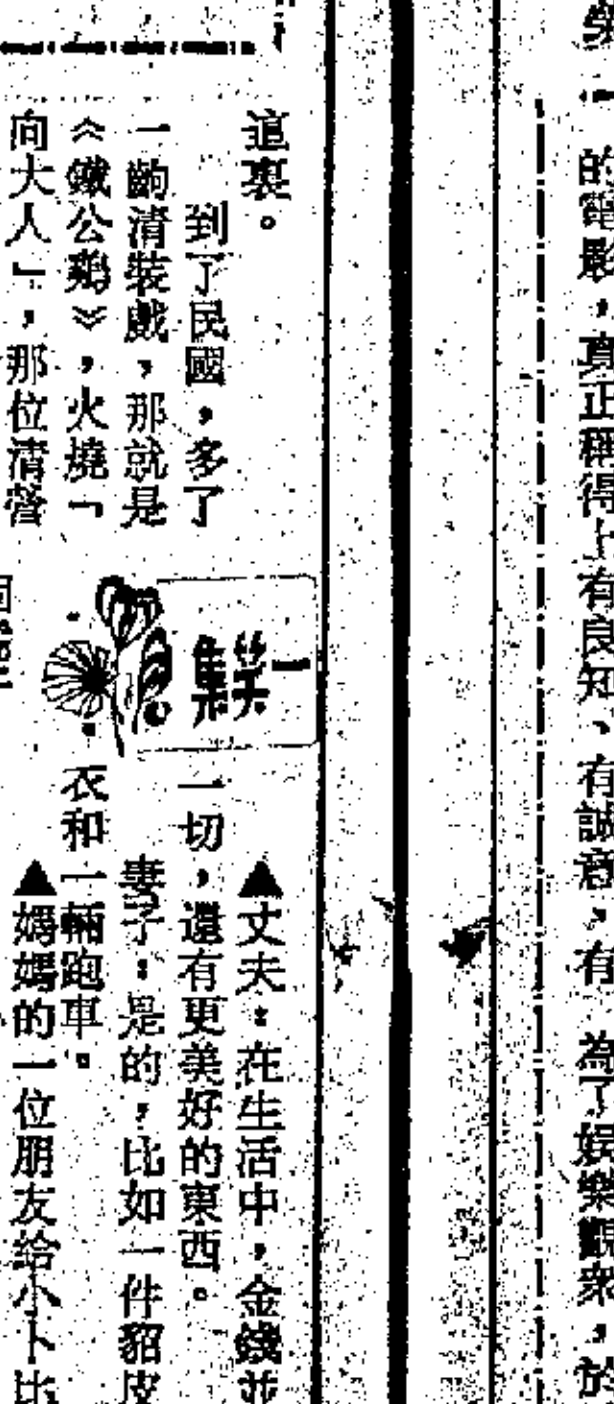 的電影，真正稱得上有良知、有誠意，有
為了娛樂觀衆，於
這裏。
到了民國，多了
一齣清裝戲，那就是
《鐵公鷄》，火燒「
向大人」，那位清營
一笑集
▲丈夫：在生活中，金錢並
一切，還有更美好的東西。
妻子：是的，比如一件貂皮
衣和一輛跑車。
▲媽媽的一位朋友給小卜比